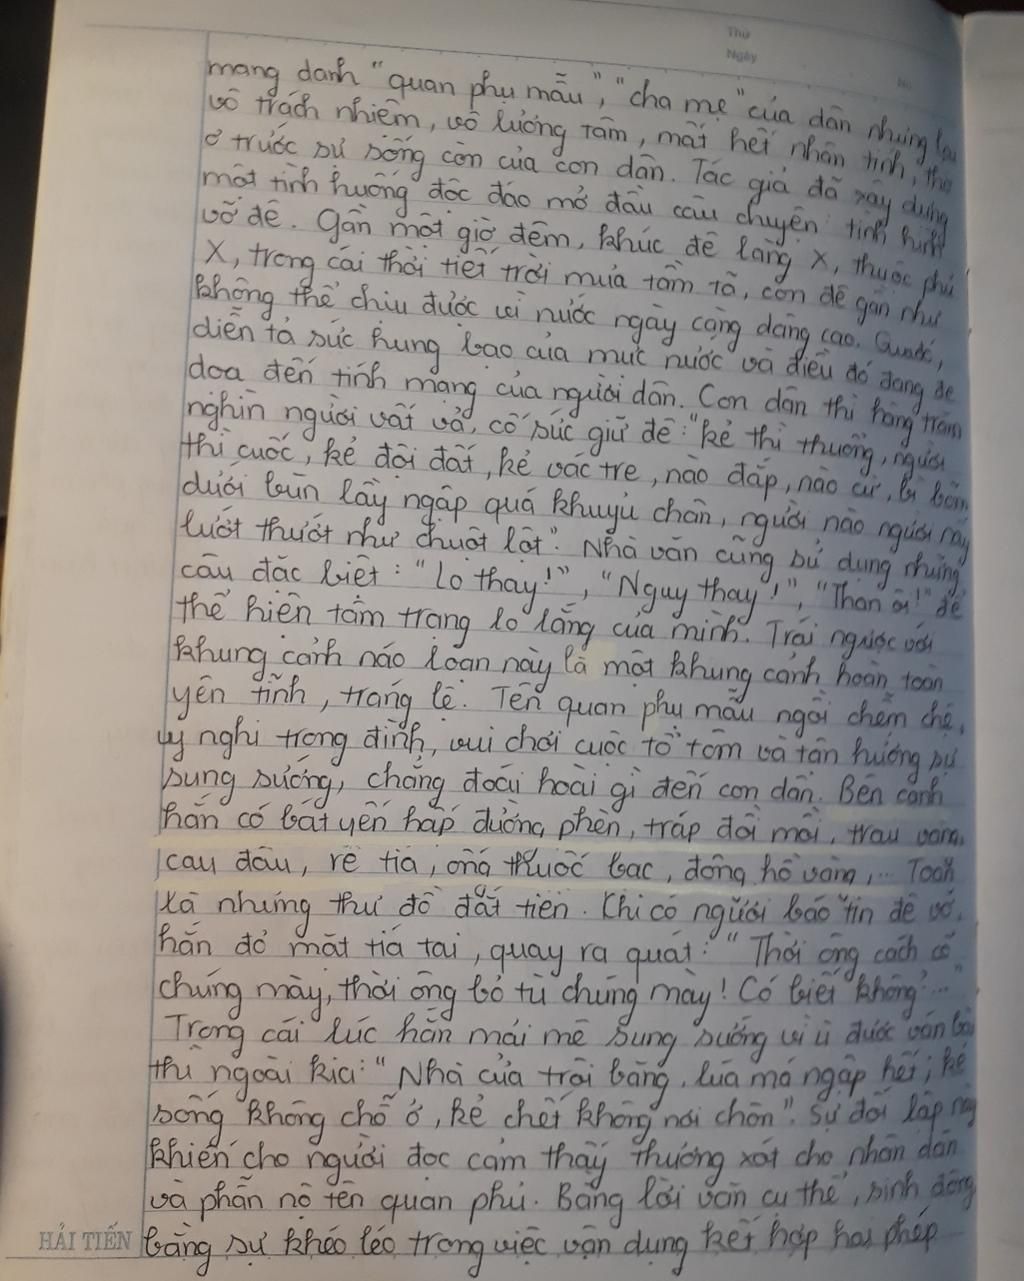 Thứ
Ngày
mang danh "quan phụ mẫu", "cha mẹ" của dân nhưng lại
vô trách nhiệm, vô lương tâm, mất hết nhân tính, thờ
ơ trước sự sống còn của con dân. Tác giả đã xây dựng
một tình huống độc đáo mở đầu câu chuyện: tình hình
vỡ đê. Gần một giờ đêm, khúc đê làng X, thuộc phủ
X, trong cái thời tiết trời mưa tầm tã, con đê gần như
không thể chịu được vì nước ngày càng dâng cao.
diễn tả sức hung bạo của mực nước và điều đó đang đe
dọa đến tính mạng của người dân. Con dân thì hàng trăm
nghìn người vất vả, cố sức giữ đê: "kẻ thì thuổng, người
thì cuốc, kẻ đội đất, kẻ vác tre, nào đắp, nào cừ, bì bõm
dưới bùn lầy ngập quá khuỷu chân, người nào người nấy
lướt thướt như chuột lột". Nhà văn cũng sử dụng những
câu đặc biệt: "Lo thay!", "Nguy thay!", "Than ôi!" để
thể hiện tâm trạng lo lắng của mình. Trái ngược với
khung cảnh náo loạn này là một khung cảnh hoàn toàn
yên tĩnh, tráng lệ. Tên quan phụ mẫu ngồi chễm chệ,
uy nghi trong đình, vui chơi cuộc tổ tôm và tận hưởng sự
sung sướng, chẳng đoái hoài gì đến con dân. Bên cạnh
hắn có bát yến hấp đường phèn, tráp đồi mồi, trầu vàng,
cau đậu, rễ tía, ống thuốc bạc, đồng hồ vàng,... Toàn
là những thứ đồ đắt tiền. Khi có người báo tin đê vỡ,
hắn đỏ mặt tía tai, quay ra quát: "Thời ông cách cổ
chúng mày, thời ông bỏ tù chúng mày! Có biết không?..."
Trong cái lúc hắn mải mê sung sướng vì ù được ván bài
thì ngoài kia: "Nhà cửa trôi băng, lúa má ngập hết; kẻ
sống không chỗ ở, kẻ chết không nơi chôn". Sự đối lập này
khiến cho người đọc cảm thấy thương xót cho nhân dân
và phẫn nộ tên quan phủ. Bằng lời văn cụ thể, sinh động,
bằng sự khéo léo trong việc vận dụng kết hợp hai phép
HẢI TIẾN